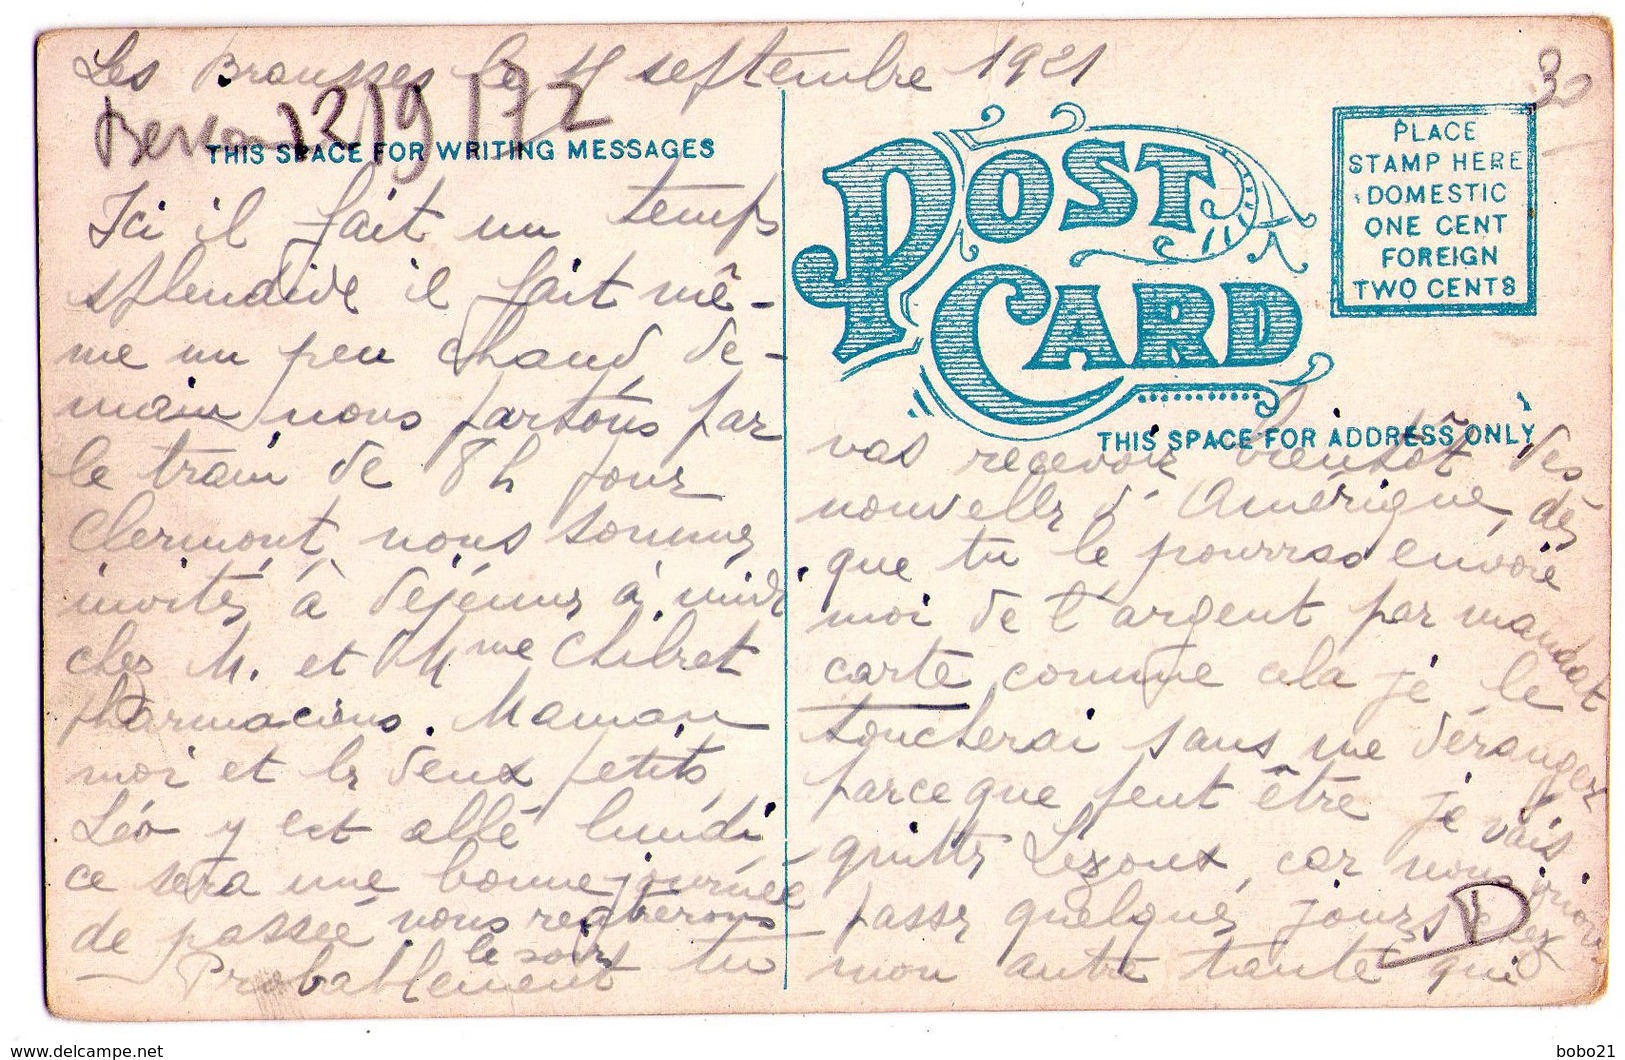 Les Brousses le 4 septembre 1921
12/9/172
THIS SPACE FOR WRITING MESSAGES
Ici il fait un temps
splendide il fait mê-
me un peu chaud de-
main nous partons par
le train de 8h pour
Clermont, nous sommes
invités à déjeuner à midi
chez M. et Mme Chibret
pharmaciens. Maman
moi et les deux petits,
Léo y est allé lundi
ce sera une bonne journée
de passée nous rentrerons
le soir
Probablement tu
POST
CARD
PLACE
STAMP HERE
DOMESTIC
ONE CENT
FOREIGN
TWO CENTS
30
THIS SPACE FOR ADDRESS ONLY
vas recevoir bientôt des
nouvelles d'Amérique, dès
que tu le pourras envoie
moi de l'argent par mandat
carte comme cela je le
toucherai sans me déranger
parce que peut être je vais
quitter Lezoux, car nous irions
passer quelques jours chez
mon autre tante qui
D
www.delcampe.net
bobo21